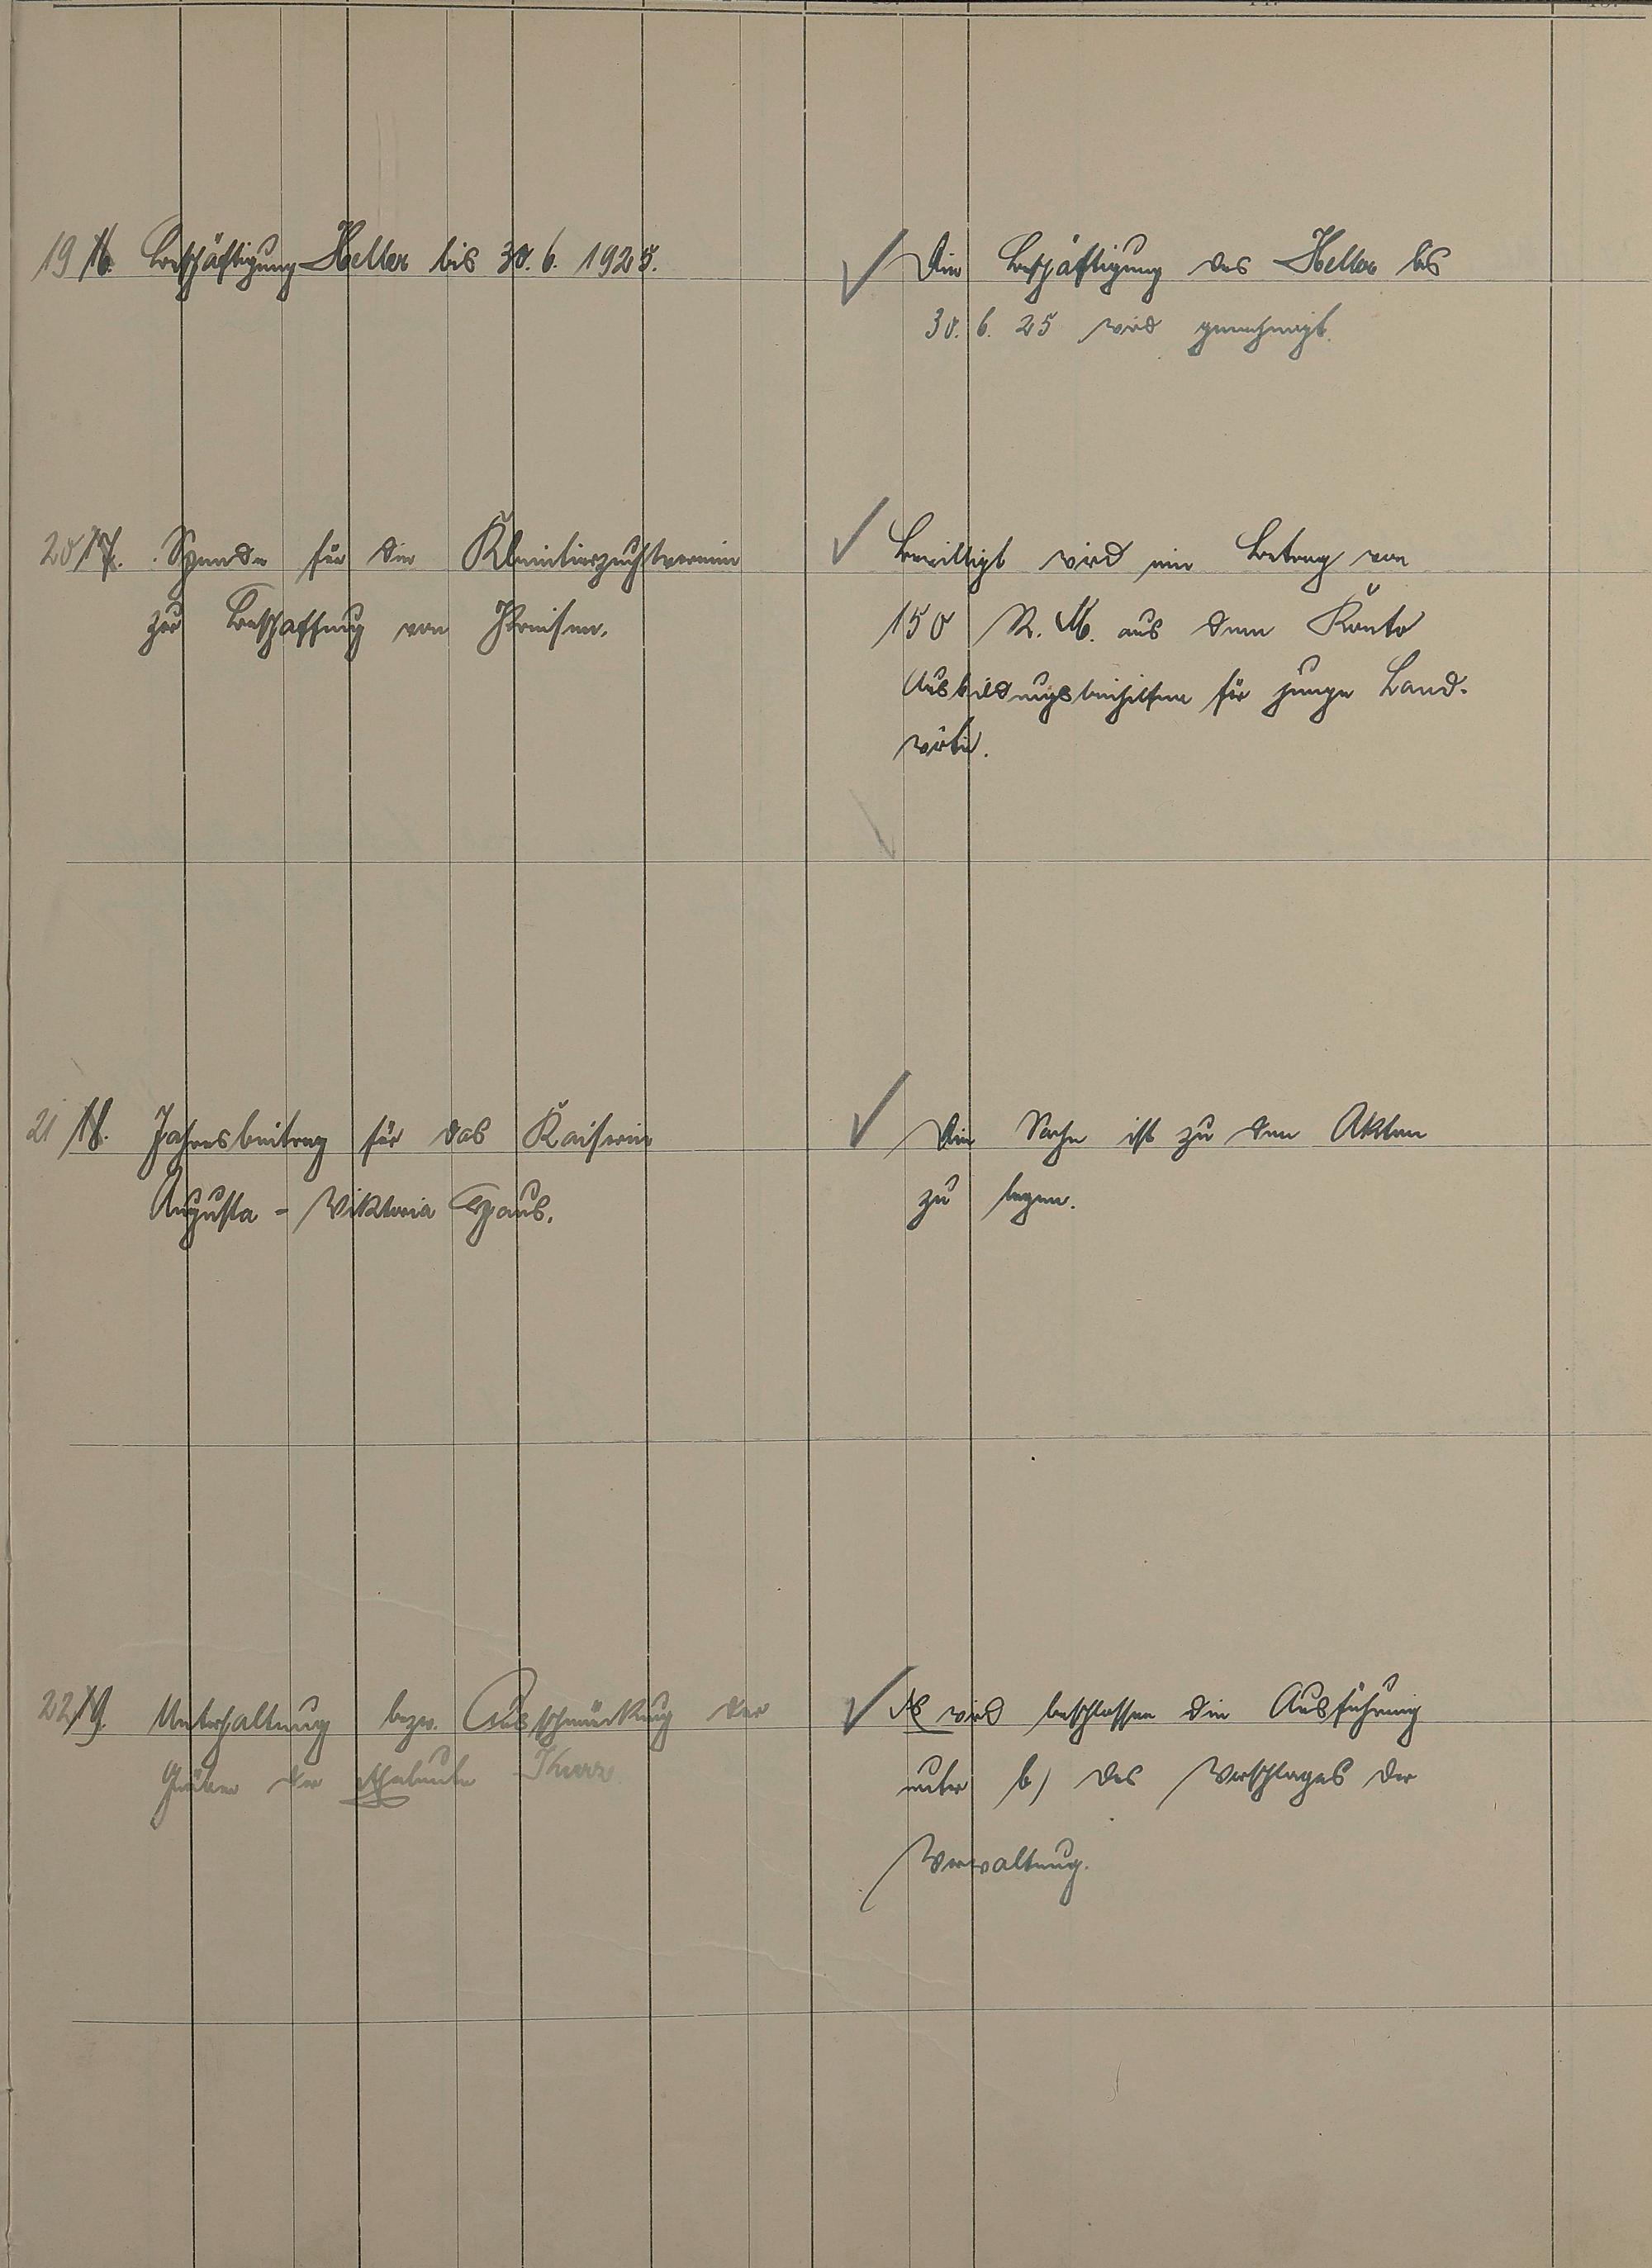 19 16. Beschäftigung Heller bis 30. 6. 1925.
Die Beschäftigung des Heller bis
30. 6. 25 wird genehmigt.
20 17. Spende für die Kleintierzuchtvereine
zur Beschaffung von Preisen.
Bewilligt wird ein Betrag von
150 R. M. aus dem Konto
Ausbildungsbeihilfen für junge Land-
wirte.
21 18. Jahresbeitrag für das Kaiserin
Augusta - Viktoria Haus.
Die Sache ist zu den Akten
zu legen.
22 19. Unterhaltung bezw. Ausschmückung der
Gräber der Eheleute Kurz
Es wird beschlossen die Ausführung
unter b) des Vorschlages der
Verwaltung.